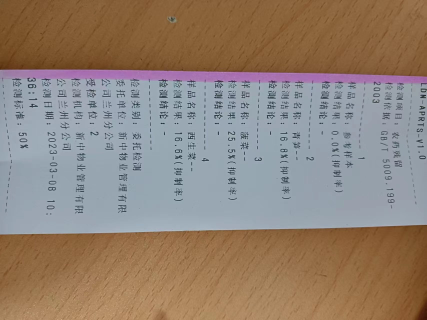 LDN-APRTS-V1.0
检测项目：农药残留
检测依据：GB/T 5009.199-
2003
1
样品名称：参考样本
检测结果：0.0%(抑制率)
检测结论：-
2
样品名称：青笋--
检测结果：16.8%(抑制率)
检测结论：-
3
样品名称：菠菜--
检测结果：25.5%(抑制率)
检测结论：-
4
样品名称：西生菜--
检测结果：16.6%(抑制率)
检测结论：-
检测类别：委托检测
委托单位：新中物业管理有限
公司兰州分公司
受检单位：2
检测机构：新中物业管理有限
公司兰州分公司
检测日期：2023-03-08 10:
36:14
检测标准：50%